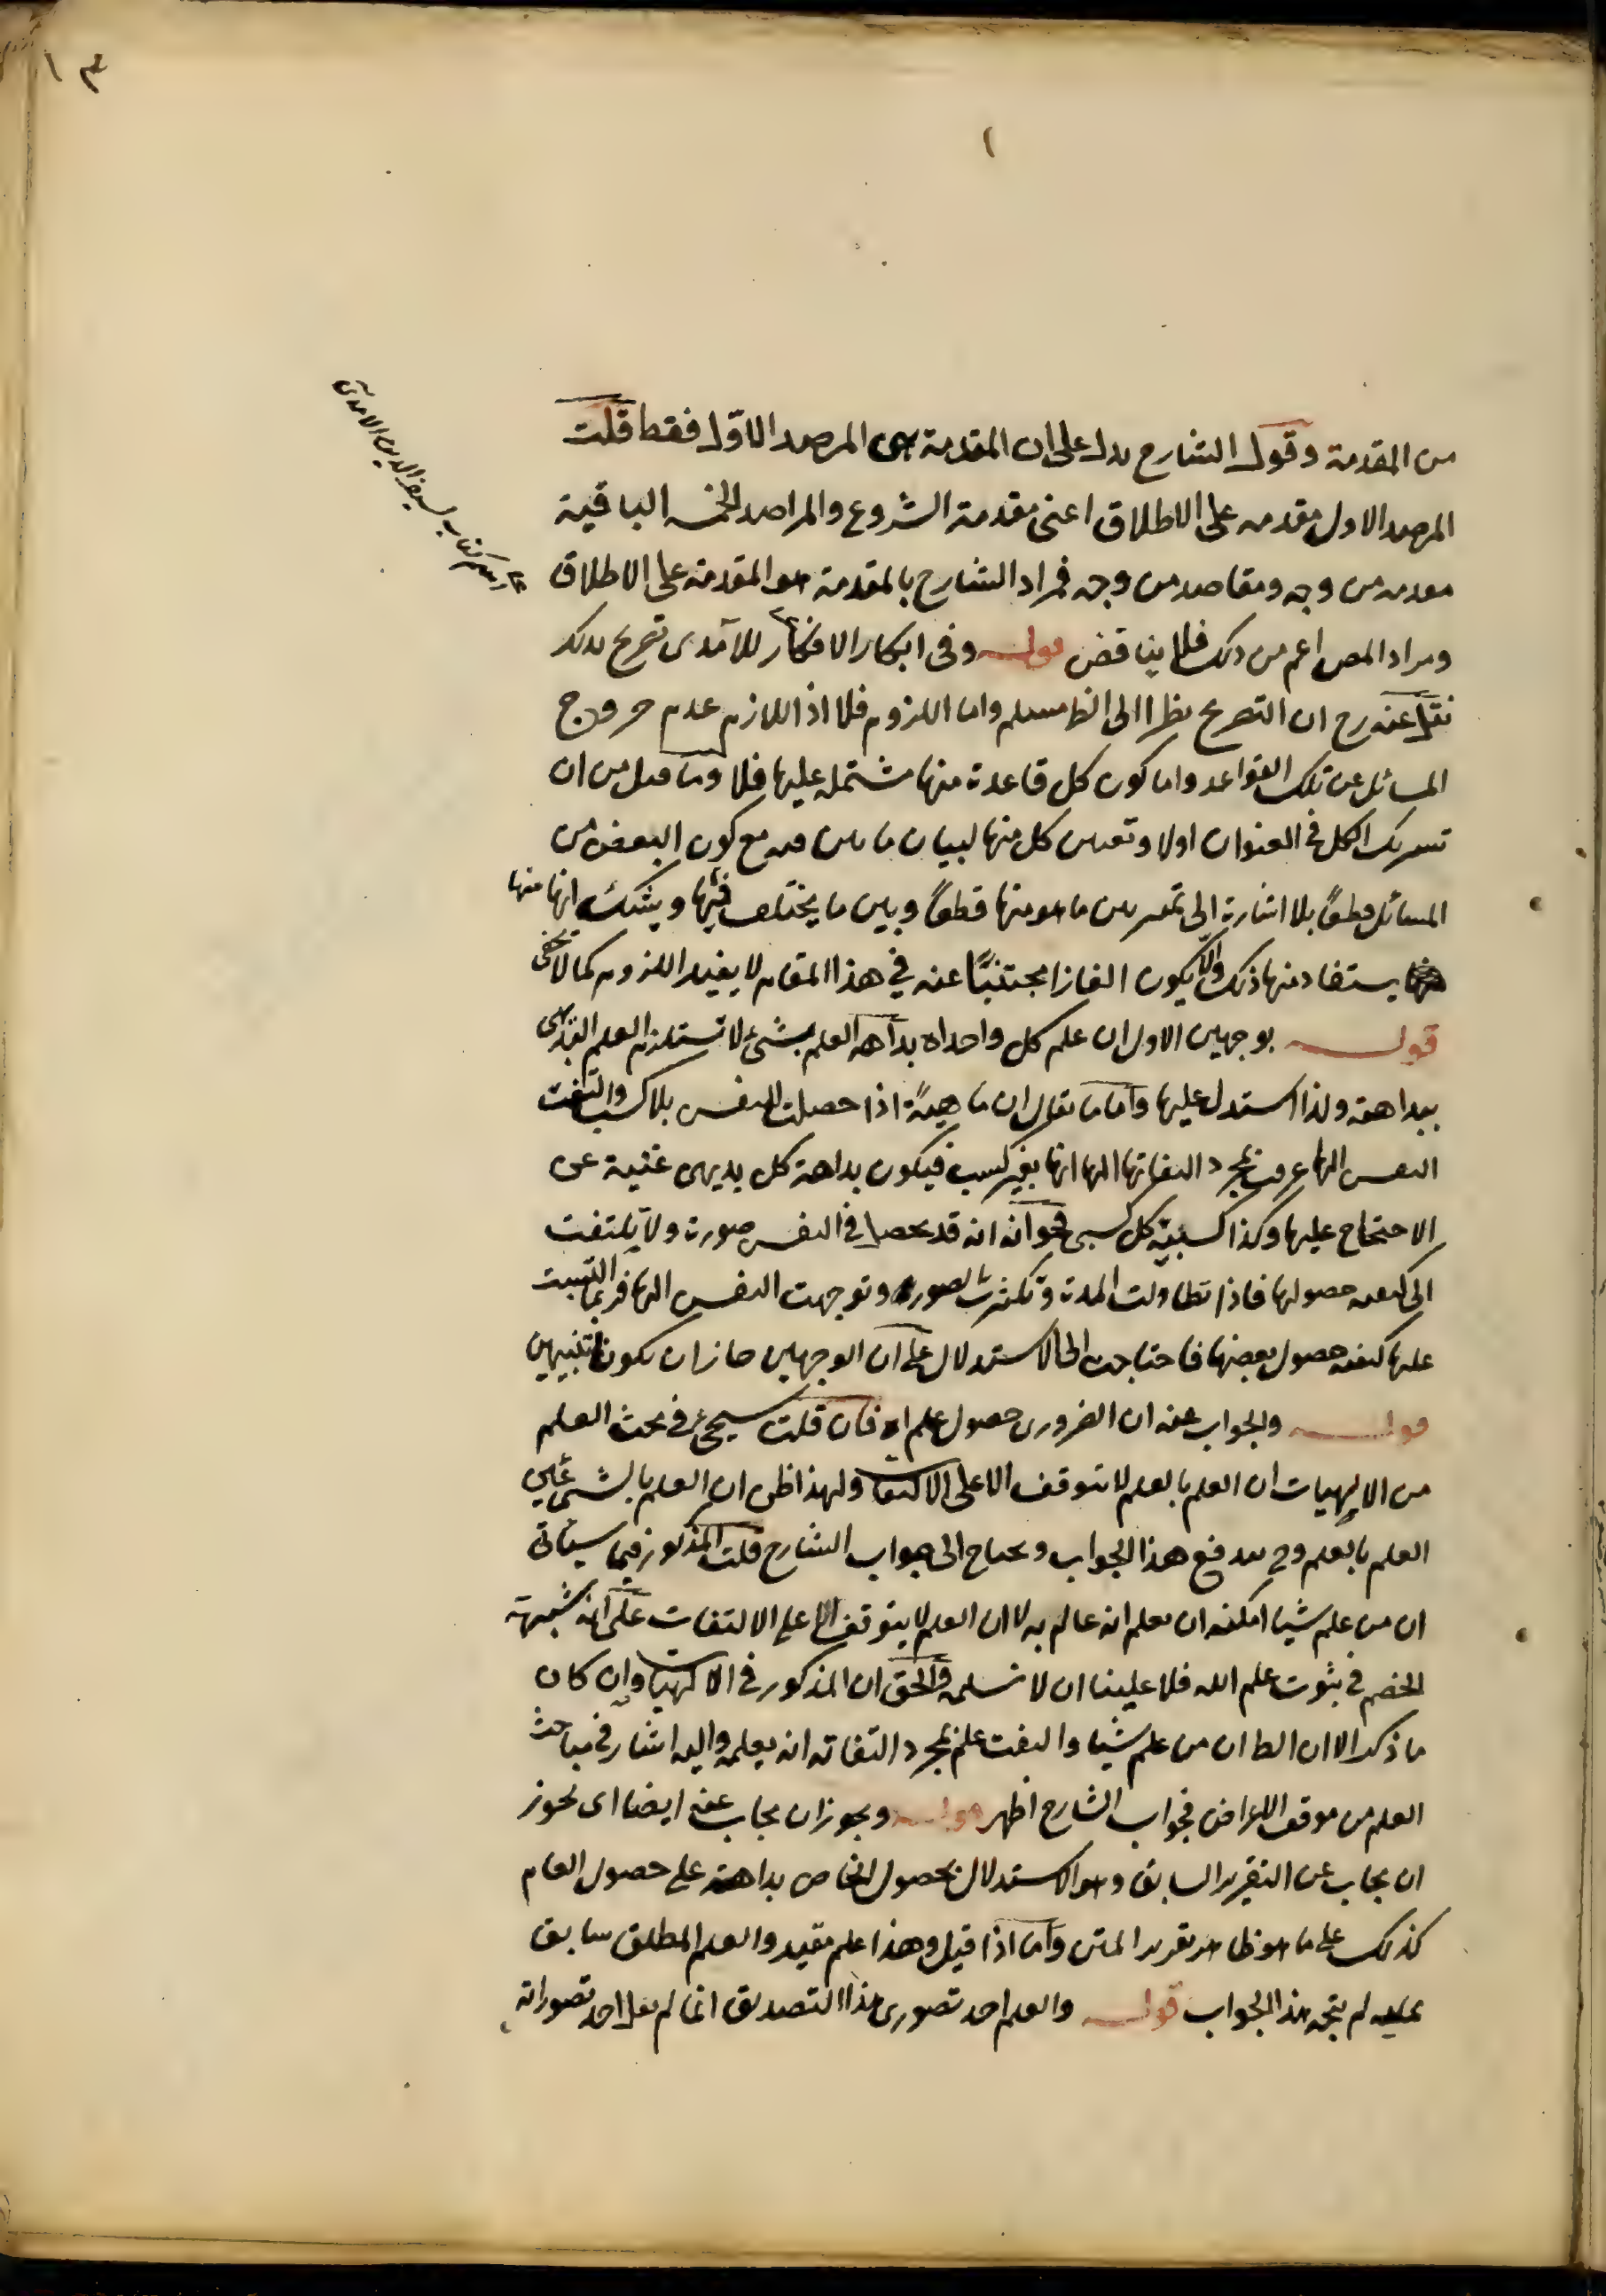 ١٣
١
من المقدمة وقول الشارح يدل على ان المقدمة هى المرصد الاوّل فقط قلت
المرصد الاول مقدمه على الاطلاق اعنى مقدمة الشروع والمراصد الخمسه الباقية
مقدمه من وجه ومقاصد من وجه فمراد الشارح بالمقدمة هو المقدمة على الاطلاق
ومراد المص اعم من ذلك فلا يناقض قوله وفى ابكار الافكار للآمدى تصريح بذلك
نقل عنه رح ان التصريح نظرا الى الظ مسلم واما اللزوم فلا اذ اللازم عدم خروج
المسائل عن تلك القواعد واما كون كل قاعدة منها مشتمله عليها فلا وما قيل من ان
تشريك الكل فى العنوان اولا وتعيين كل منها لبيان ما بين فيه مع كون البعض من
المسائل قطعاً بلا اشارة الى تمييز بين ما هو منها قطعاً وبين ما يختلف فيها ويشك انها منها
يستفاد منها ذلك والّا يكون الغازا مجتنبًا عنه فى هذا المقام لا يفيد اللزوم كما لا يخفى
قوله بوجهين الاول ان علم كل واحد اه بداهة العلم بشئ لا تستلزم العلم البديهى
ببداهته ولذا استدل عليها واما ما يقال ان ماهيةً اذا حصلت للنفس بلا كسب والتفت
النفس اليها عرفت بمجرد التفاتها اليها انها بغير كسب فيكون بداهة كل بديهى غنية عن
الاحتجاج عليها وكذا كسبية كل كسبى فجوابه انه قد يحصل فى النفس صورة ولا يلتفت
الى كيفيه حصولها فاذا تطاولت المدة وتكثرت الصور وتوجهت النفس اليها فربما التبست
عليها كيفيه حصول بعضها فاحتاجت الى الاستدلال على ان الوجهين جاز ان يكونا تنبيهين
قوله والجواب عنه ان الضرورى حصول علم اه فان قلت سيجئ فى بحث العلم
من الالهيات ان العلم بالعلم لا يتوقف الا على الالتفات ولهذا ظن ان العلم بالشئ عين
العلم بالعلم وح يندفع هذا الجواب ويحتاج الى جواب الشارح قلت المذكور فيما سيأتى
ان من علم شيئا امكنه ان يعلم انه عالم به لا ان العلم لا يتوقف الا على الالتفات على انه شبهة
الخصم فى ثبوت علم الله فلا علينا ان لا نسلمه والحق ان المذكور فى الالهيات وان كان
ما ذكر الا ان الظ ان من علم شيئا والتفت علم بمجرد التفاته انه يعلمه واليه اشار فى مباحث
العلم من موقف الاعراض فجواب الشارح اظهر قوله ويجوز ان يجاب عنه ايضا اى يجوز
ان يجاب عن التقرير السابق وهو الاستدلال بحصول الخاص بداهة على حصول العام
كذلك على ما هو ظاهر تقرير المتن واما اذا قيل وهذا علم مقيد والعلم المطلق سابق
عليه لم يتجه هذا الجواب قوله والعلم احد تصورى هذا التصديق انما لم يقل احد تصوراته
اسم كتاب لسيف الدين الآمدى